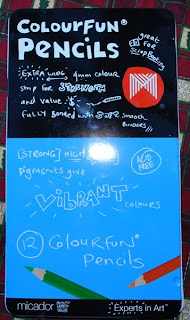 COLOURFUN®
PENCILS
great
FOR
ScrapBooking
EXTRA WIDE 4mm colour
strip for
and value
FULLY Bonded with smooth
BINDERS
[STRONG] HIGH
pigments give
ACID
FREE
VIBRANT
colours
12 COLOURFUN®
PENCILS
micador
Experts in Art™